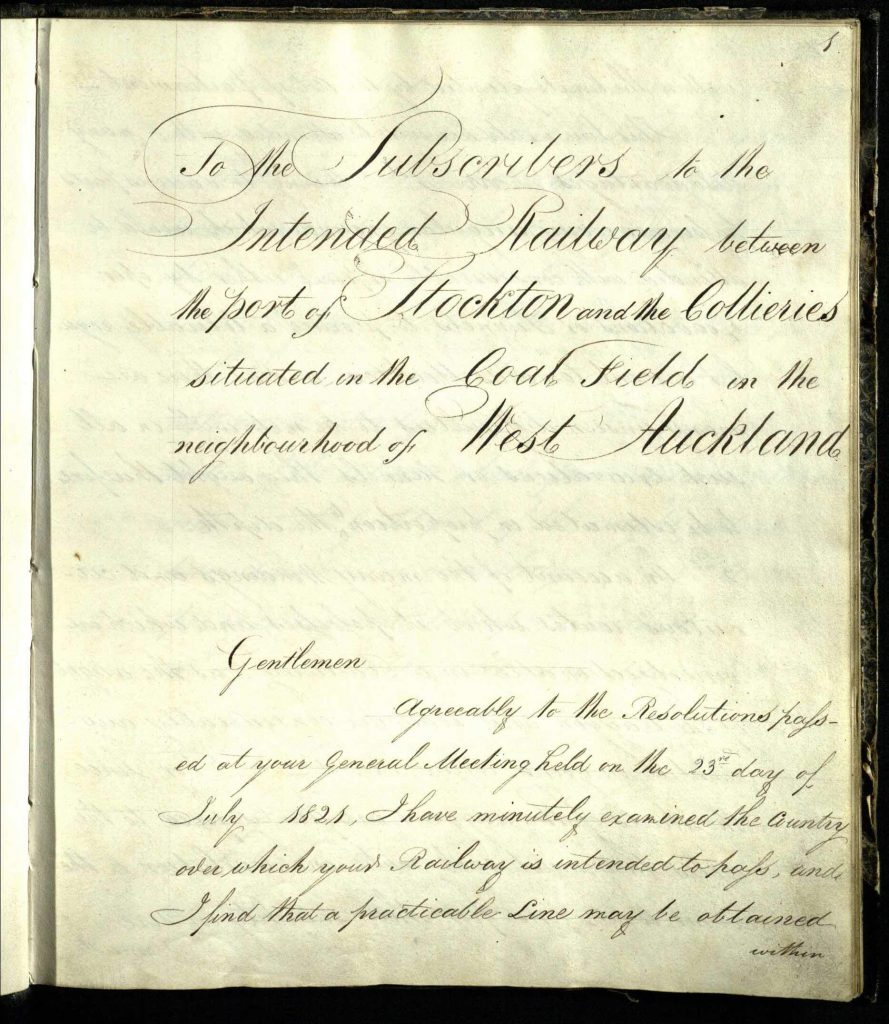 1
To the Subscribers to the
Intended Railway between
the port of Stockton and the Collieries
situated in the Coal Field in the
neighbourhood of West Auckland
Gentlemen
Agreeably to the Resolutions pass-
ed at your General Meeting held on the 23rd day of
July 1821, I have minutely examined the Country
over which your Railway is intended to pass, and
I find that a practicable Line may be obtained
within